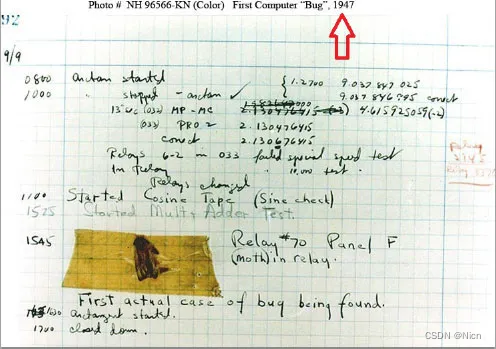 Photo # NH 96566-KN (Color) First Computer "Bug", 1947
92
9/9
0800 antan started
1000 " stopped - antan ✓ { 1.2700 9.037 847 025
9.037 846 995 conect
13"uc (032) MP - MC 2.130476415 4.615925059(-2)
(033) PRO 2 2.130476415
conect 2.130676415
Relays 6-2 in 033 failed special speed test
In Relay " 10,000 test.
Relays changed
1100 Started Cosine Tape (Sine check)
1525 Started Mult+Adder Test.
1545 Relay #70 Panel F
(Moth) in relay.
First actual case of bug being found.
antangent started.
1700 closed down.
CSDN @Nicn